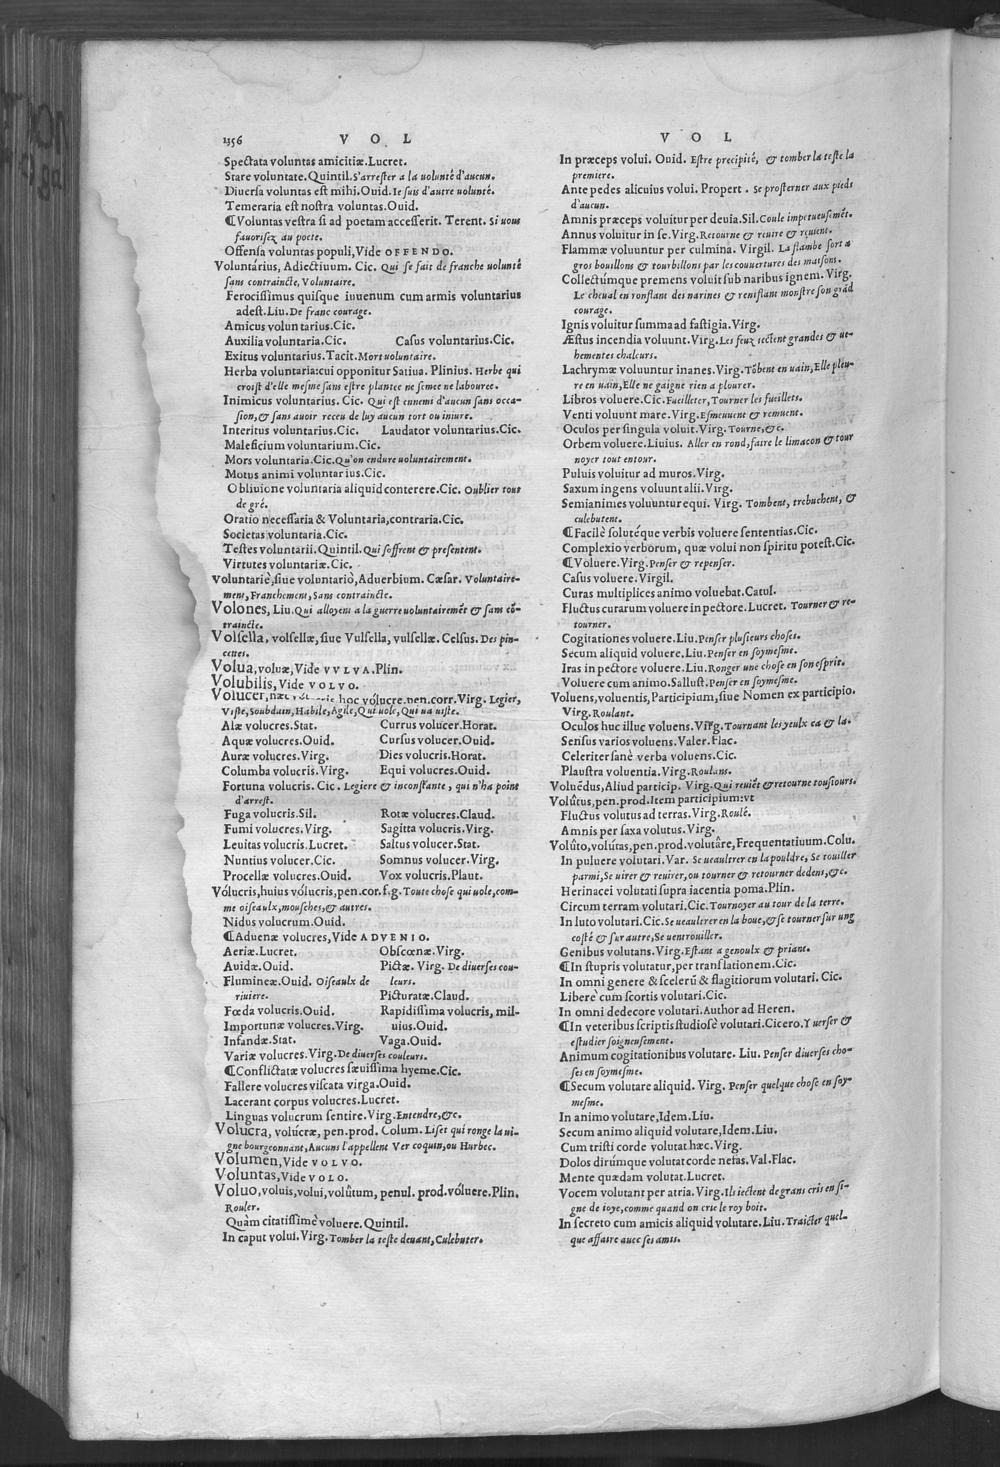 1356 V O L
Spectata voluntas amicitiæ.Lucret.
Stare voluntate.Quintil.S'arrester a la uolunté d'aucun.
Diuersa voluntas est mihi.Ouid.Ie suis d'autre uolunté.
Temeraria est nostra voluntas.Ouid.
¶Voluntas vestra si ad poetam accesserit. Terent. Si uous
fauorisez au poete.
Offensa voluntas populi,Vide OFFENDO.
Voluntárius, Adiectiuum. Cic. Qui se fait de franche uolunté
sans contraincte, Voluntaire.
Ferocissimus quisque iuuenum cum armis voluntarius
adest.Liu.De franc courage.
Amicus voluntarius.Cic.
Auxilia voluntaria.Cic. Casus voluntarius.Cic.
Exitus voluntarius.Tacit.Mort uoluntaire.
Herba voluntaria:cui opponitur Satiua. Plinius. Herbe qui
croist d'elle mesme sans estre plantee ne semee ne labouree.
Inimicus voluntarius. Cic. Qui est ennemi d'aucun sans occa-
sion,& sans auoir receu de luy aucun tort ou iniure.
Interitus voluntarius.Cic. Laudator voluntarius.Cic.
Maleficium voluntarium.Cic.
Mors voluntaria.Cic.Qu'on endure uoluntairement.
Motus animi voluntarius.Cic.
Obliuione voluntaria aliquid conterere.Cic. Oublier tout
de gré.
Oratio necessaria & Voluntaria,contraria.Cic.
Societas voluntaria.Cic.
Testes voluntarii.Quintil.Qui s'offrent & presentent.
Virtutes voluntariæ.Cic.
Voluntariè,siue voluntariò,Aduerbium. Cæsar. Voluntaire-
ment,Franchement,Sans contraincte.
Volones, Liu.Qui alloyent a la guerre uoluntairemēt & sans cō-
traincte.
Volsella, volsellæ,siue Vulsella, vulsellæ. Celsus. Des pin-
cettes.
Volua,voluæ,Vide VVLVA.Plin.
Volubilis,Vide VOLVO.
Volucer, hoc vólucre.pen.corr.Virg. Legier,
Viste,Soubdain,Habile,Agile,Qui uole,Qui ua uiste.
Alæ volucres.Stat. Currus volucer.Horat.
Aquæ volucres.Ouid. Cursus volucer.Ouid.
Auræ volucres.Virg. Dies volucris.Horat.
Columba volucris.Virg. Equi volucres.Ouid.
Fortuna volucris.Cic. Legiere & inconstante, qui n'ha point
d'arrest.
Fuga volucris.Sil. Rotæ volucres.Claud.
Fumi volucres.Virg. Sagitta volucris.Virg.
Leuitas volucris.Lucret. Saltus volucer.Stat.
Nuntius volucer.Cic. Somnus volucer.Virg.
Procellæ volucres.Ouid. Vox volucris.Plaut.
Vólucris,huius vólucris,pen.cor.f.g.Toute chose qui uole,com-
me oiseaulx,mousches,& autres.
Nidus volucrum.Ouid.
¶Aduenæ volucres,Vide ADVENIO.
Aeriæ.Lucret. Obscœnæ.Virg.
Auidæ.Ouid. Pictæ. Virg. De diuerses cou-
Flumineæ.Ouid. Oiseaulx de leurs.
riuiere. Picturatæ.Claud.
Fœda volucris.Ouid. Rapidissima volucris, mil-
Importunæ volucres.Virg. uius.Ouid.
Infandæ.Stat. Vaga.Ouid.
Variæ volucres.Virg.De diuerses couleurs.
¶Conflictatæ volucres sæuissima hyeme.Cic.
Fallere volucres viscata virga.Ouid.
Lacerant corpus volucres.Lucret.
Linguas volucrum sentire.Virg.Entendre,&c.
Volucra, volúcræ, pen.prod. Colum. Liset qui ronge la ui-
gne bourgeonnant,Aucuns l'appellent Ver coquin,ou Hurbec.
Volumen,Vide VOLVO.
Voluntas,Vide VOLO.
Voluo,voluis,volui,volûtum, penul. prod.vóluere.Plin.
Rouler.
Quàm citatissimè voluere. Quintil.
In caput volui.Virg.Tomber la teste deuant,Culebuter.
V O L
In præceps volui. Ouid. Estre precipité, & tomber la teste la
premiere.
Ante pedes alicuius volui. Propert. Se prosterner aux pieds
d'aucun.
Amnis præceps voluitur per deuia.Sil.Coule impetueusemēt.
Annus voluitur in se.Virg.Retourne & reuire & reuient.
Flammæ voluuntur per culmina. Virgil. La flambe sort a
gros bouillons & tourbillons par les couuertures des maisons.
Collectúmque premens voluit sub naribus ignem. Virg.
Le cheual en ronflant des narines & reniflant monstre son grād
courage.
Ignis voluitur summa ad fastigia.Virg.
Æstus incendia voluunt.Virg.Les feuz iectent grandes & ue-
hementes chaleurs.
Lachrymæ voluuntur inanes.Virg.Tōbent en uain,Elle pleu-
re en uain,Elle ne gaigne rien a plourer.
Libros voluere.Cic.Fueilleter,Tourner les fueillets.
Venti voluunt mare.Virg.Esmeuuent & remuent.
Oculos per singula voluit.Virg.Tourne,&c.
Orbem voluere.Liuius. Aller en rond,faire le limacon & tour
noyer tout entour.
Puluis voluitur ad muros.Virg.
Saxum ingens voluunt alii.Virg.
Semianimes voluuntur equi. Virg. Tombent, trebuchent, &
culebutent.
¶Facilè solutéque verbis voluere sententias.Cic.
Complexio verborum, quæ volui non spiritu potest.Cic.
¶Voluere.Virg.Penser & repenser.
Casus voluere.Virgil.
Curas multiplices animo voluebat.Catul.
Fluctus curarum voluere in pectore. Lucret. Tourner & re-
tourner.
Cogitationes voluere.Liu.Penser plusieurs choses.
Secum aliquid voluere.Liu.Penser en soymesme.
Iras in pectore voluere.Liu.Ronger une chose en son esprit.
Voluere cum animo.Sallust.Penser en soymesme.
Voluens,voluentis,Participium,siue Nomen ex participio.
Virg.Roulant.
Oculos huc illuc voluens.Virg.Tournant les yeulx ca & la.
Sensus varios voluens.Valer.Flac.
Celeriter sanè verba voluens.Cic.
Plaustra voluentia.Virg.Roulans.
Voluēdus,Aliud particip. Virg.Qui reuiēt & retourne tousiours.
Volûtus,pen.prod.Item participium:vt
Fluctus volutus ad terras.Virg.Roulé.
Amnis per saxa volutus.Virg.
Volûto,volútas,pen.prod.volutâre,Frequentatiuum.Colu.
In puluere volutari.Var. Se ueaultrer en la pouldre, Se touiller
parmi,Se uirer & reuirer,ou tourner & retourner dedens,&c.
Herinacei volutati supra iacentia poma.Plin.
Circum terram volutari.Cic.Tournoyer au tour de la terre.
In luto volutari.Cic.Se ueaultrer en la boue,& se tourner sur ung
costé & sur autre,Se uentrouiller.
Genibus volutans.Virg.Estant a genoulx & priant.
¶In stupris volutatur,per translationem.Cic.
In omni genere & scelerū & flagitiorum volutari. Cic.
Liberè cum scortis volutari.Cic.
In omni dedecore volutari.Author ad Heren.
¶In veteribus scriptis studiosè volutari.Cicero.Y uerser &
estudier soigneusement.
Animum cogitationibus volutare. Liu. Penser diuerses cho-
ses en soymesme.
¶Secum volutare aliquid. Virg. Penser quelque chose en soy-
mesme.
In animo volutare,Idem.Liu.
Secum animo aliquid volutare,Idem.Liu.
Cum tristi corde volutat hæc.Virg.
Dolos dirúmque volutat corde nefas.Val.Flac.
Mente quædam volutat.Lucret.
Vocem volutant per atria.Virg.Ils iectent de grans cris en si-
gne de ioye,comme quand on crie le roy boit.
In secreto cum amicis aliquid volutare.Liu.Traicter quel-
que affaire auec ses amis.